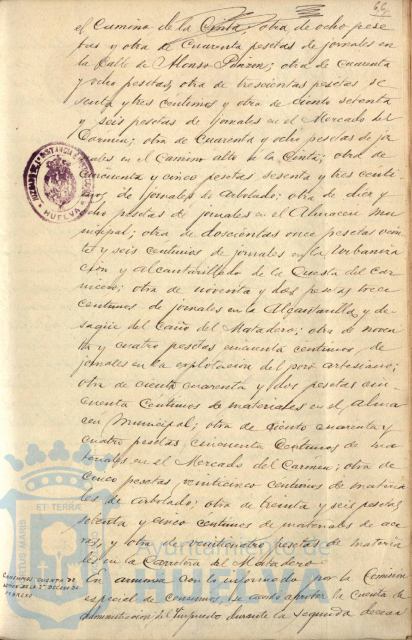 66
el Camino de la Cinta; otra de ocho pese
tas y otra de cuarenta pesetas de jornales en
la Calle de Alonso Pinzon; otra de cuarenta
y ocho pesetas, otra de trescientas pesetas se
senta y tres centimos y otra de ciento setenta
y seis pesetas de jornales en el Mercado del
Carmen; otra de cuarenta y ocho pesetas de jor
nales en el Camino alto a la Cinta; otra de
cincuenta y cinco pesetas sesenta y tres centi
mos, de jornales de arbolado; otra de diez y
ocho pesetas de jornales en el Almacen mu
nicipal; otra de doscientas once pesetas vein
te y seis centimos de jornales en la urbaniza
cion y alcantarillado de la Cuesta del Car
nicero; otra de noventa y dos pesetas trece
centimos de jornales en la Alcantarilla y de
sagüe del Caño del Matadero; otra de noven
ta y cuatro pesetas cincuenta centimos, de
jornales en la explotacion del pozo artesiano;
otra de ciento cuarenta y dos pesetas cin
cuenta centimos de materiales en el Alma
cen Municipal; otra de ciento cuarenta y
cuatro pesetas cincuenta centimos de ma
teriales en el Mercado del Carmen; otra de
cinco pesetas veinticinco centimos de materia
les de arbolado; otra de treinta y seis pesetas
setenta y cinco centimos de materiales de ace
ras, y otra de veinticuatro pesetas de materia
les en la Carretera del Matadero.
En armonia con lo informado por la Comision
especial de Consumos se acordó aprobar la cuenta de
administracion del Impuesto durante la segunda decena
HUELVA
PORTUS MARIS
ET TERRAE
Ayuntamiento de
HUELVA